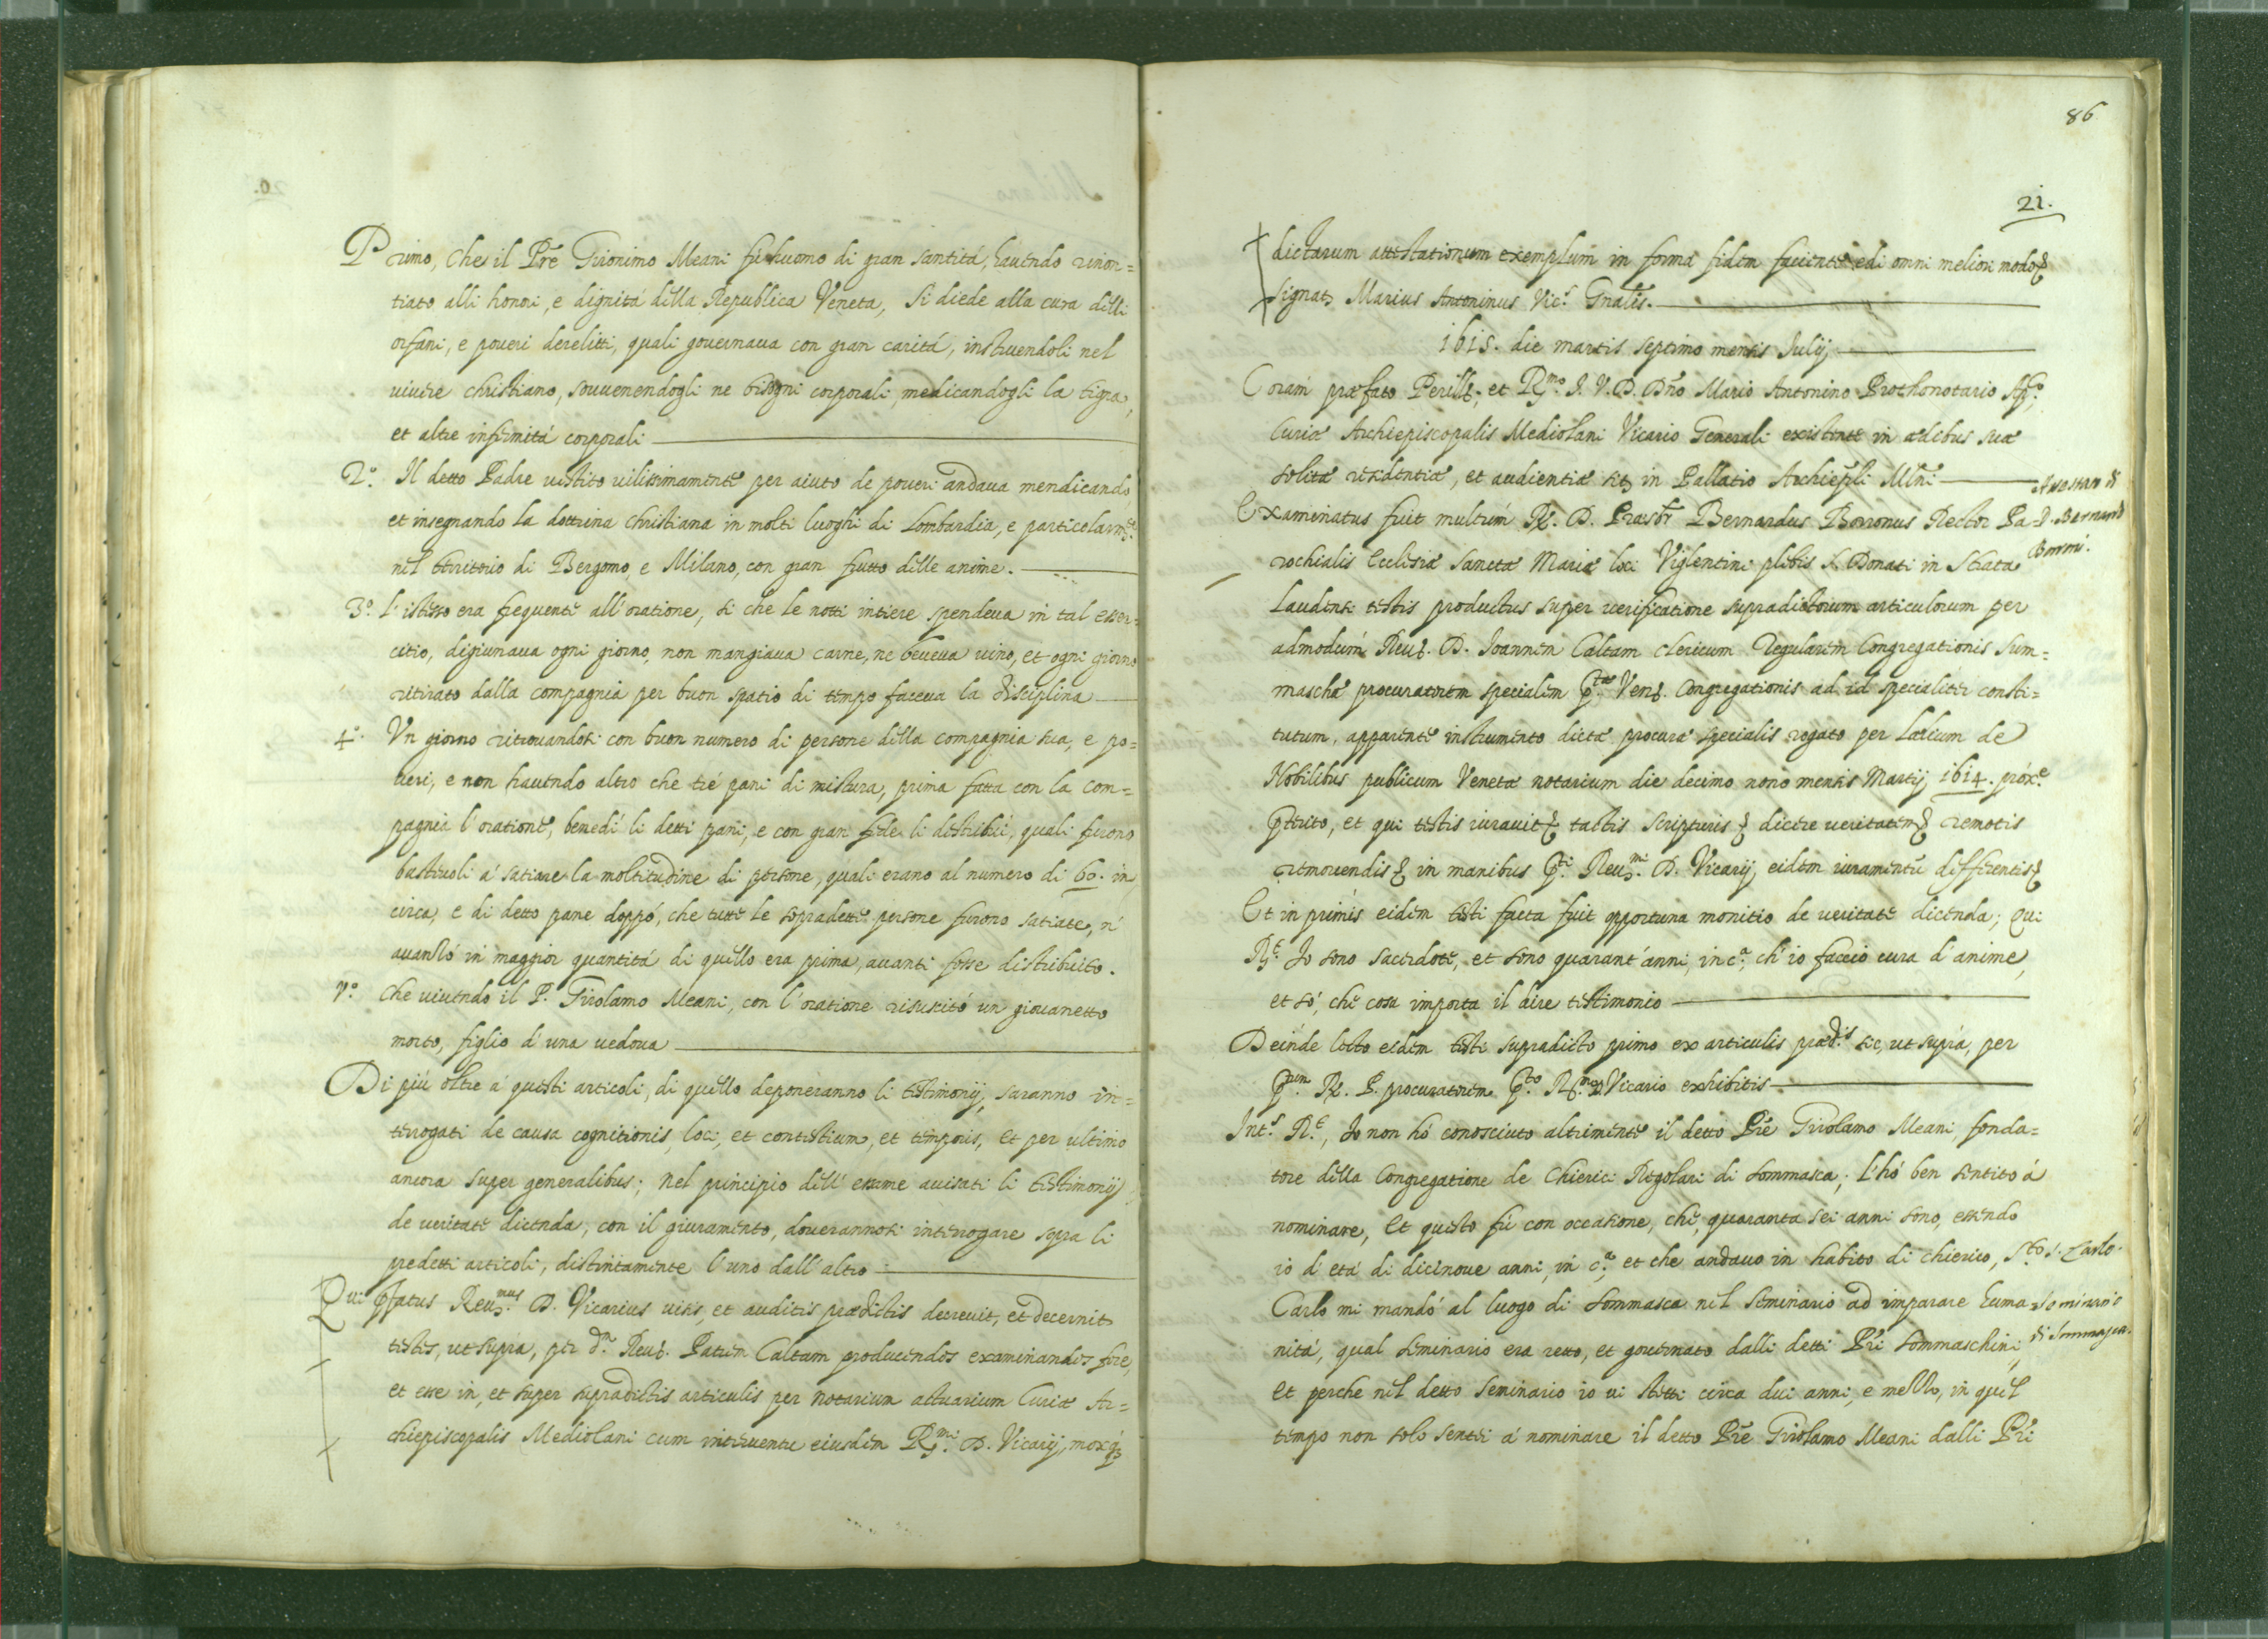 Primo, che il Prē Gironimo Meani fù huomo di gran santitá, hauendo rinon=
tiato alli honori, e dignitá della Republica Veneta, si diede alla cura delli
orfani, e poueri derelitti, quali gouernaua con gran caritá, instruendoli nel
viuere christiano, souuenendogli ne bisogni corporali, medicandogli la tigna,
et altre infirmitá corporali
2.º Il detto Padre vestito vilissimamente per aiuto de poueri andaua mendicando
et insegnando la dottrina christiana in molti luoghi di Lombardia, e particolarm.te
nel territorio di Bergomo, e Milano, con gran frutto delle anime.
3.º L'istesso era frequente all'oratione, si che le notti intiere spendeua in tal esser=
citio, digiunaua ogni giorno, non mangiaua carne, ne beueua vino, et ogni giorno
ritirato dalla compagnia per buon spatio di tempo faceua la disciplina
4.º Vn giorno ritrouandosi con buon numero di persone della compagnia sua, e po=
ueri, e non hauendo altro che tré pani di mistura, prima fatta con la com=
pagnia l'oratione, benedí li detti pani, e con gran fede li distribuí, quali furono
basteuoli á satiare la moltitudine di persone, quali erano al numero di 60. in
circa, e di detto pane doppó, che tutte le sopradette persone furono satiate, n'
auanzó in maggior quantitá di quello era prima, auanti fosse distribuito.
5.º Che viuendo il P. Girolamo Meani, con l'oratione risuscitó un giouanetto
morto, figlio d'una vedoua
Di piú oltre á questi articoli, di quello deponeranno li testimonij, saranno in=
terrogati de causa cognitionis, loci, et contestium, et temporis, et per ultimo
ancora super generalibus; Nel principio dell'essame auisati li testimonij
de veritate dicenda, con il giuramento, doverannosi interrogare sopra li
predetti articoli, distintamente l'uno dall'altro
Qui pfatus Reu.mus D. Vicarius visis, et auditis prædictis decreuit, et decernit
testes, ut supra, per d.m Reu. Patrem Caltam producendos examinandos fore,
et esse in, et super supradictis articulis per Notarium actuarium Curiæ Ar=
chiepiscopalis Mediolani cum interuentu eiusdem R.mi D. Vicarij, moxq;
86
21.
dictarum attestationum exemplum in forma fidem faciente edi omni meliori modo
Signat. Marius Antoninus Vic.s Gnalis.
1615. die martis septimo mensis Julij
Coram præfato Perill. et R.mo J. V. D. Dno Mario Antonino Prothonotario Ap.co
Curiæ Archiepiscopalis Mediolani Vicario Generali existente in ædibus suæ
solitæ residentiæ, et audientiæ sit. in Pallatio Archiepli Mlni
Examinatus fuit multum R. D. Præsbr Bernardus Borronus Rector Pa=
D. Bernardo
rochialis Ecclesiæ Sanctæ Mariæ loci Viglentini plebis S. Donati in Strata
Borroni.
Laudensi testis productus super verificatione supradictorum articulorum per
admodum Reu. D. Joannem Caltam clericum Regularem Congregationis Sum=
maschæ procuratorem specialem p.tæ Ven. Congregationis ad id specialiter consti=
tutum, apparente instrumento dictæ procuræ specialis rogato per Lælium de
Nobilibus publicum Venetæ notarium die decimo nono mensis Martij, 1614. próx.e
pterito, et qui testis iurauit tactis scripturis dicere veritatem remotis
remouendis in manibus p.ti Reu.mi D. Vicarij eidem iuramentū differentis
Et in primis eidem testi facta fuit opportuna monitio de veritate dicenda; Qui
R.t Io sono sacerdote, et sono quarant'anni, in c.a, ch'io faccio cura d'anime,
et só, che cosa importa il dire testimonio
Deinde lecto eidem testi supradicto primo ex articulis præd.is sic, ut supra, per
p.um R. P. procuratorem p.to R.mo D. Vicario exhibitis
Int.s R.t, Io non hó conosciuto altrimente il detto Prē Girolamo Meani, fonda=
tore della Congregatione de Chierici Regolari di Sommasca; l'hó ben sentito á
nominare, et questo fú con occasione, che, quaranta sei anni sono, essendo
io d'etá di dicinoue anni, in c.a, et che andauo in habito di chierico, S.to
S. Carlo.
Carlo mi mandó al luogo di Sommasca nel Seminario ad imparare huma=
Seminario
nitá, qual Seminario era retto, et gouernato dalli detti Pri Sommaschini,
di Sommasca.
et perche nel detto Seminario io vi stetti circa dui anni, e mezzo, in quel
tempo non solo sentei á nominare il detto Prē Girolamo Meani dalli Pri